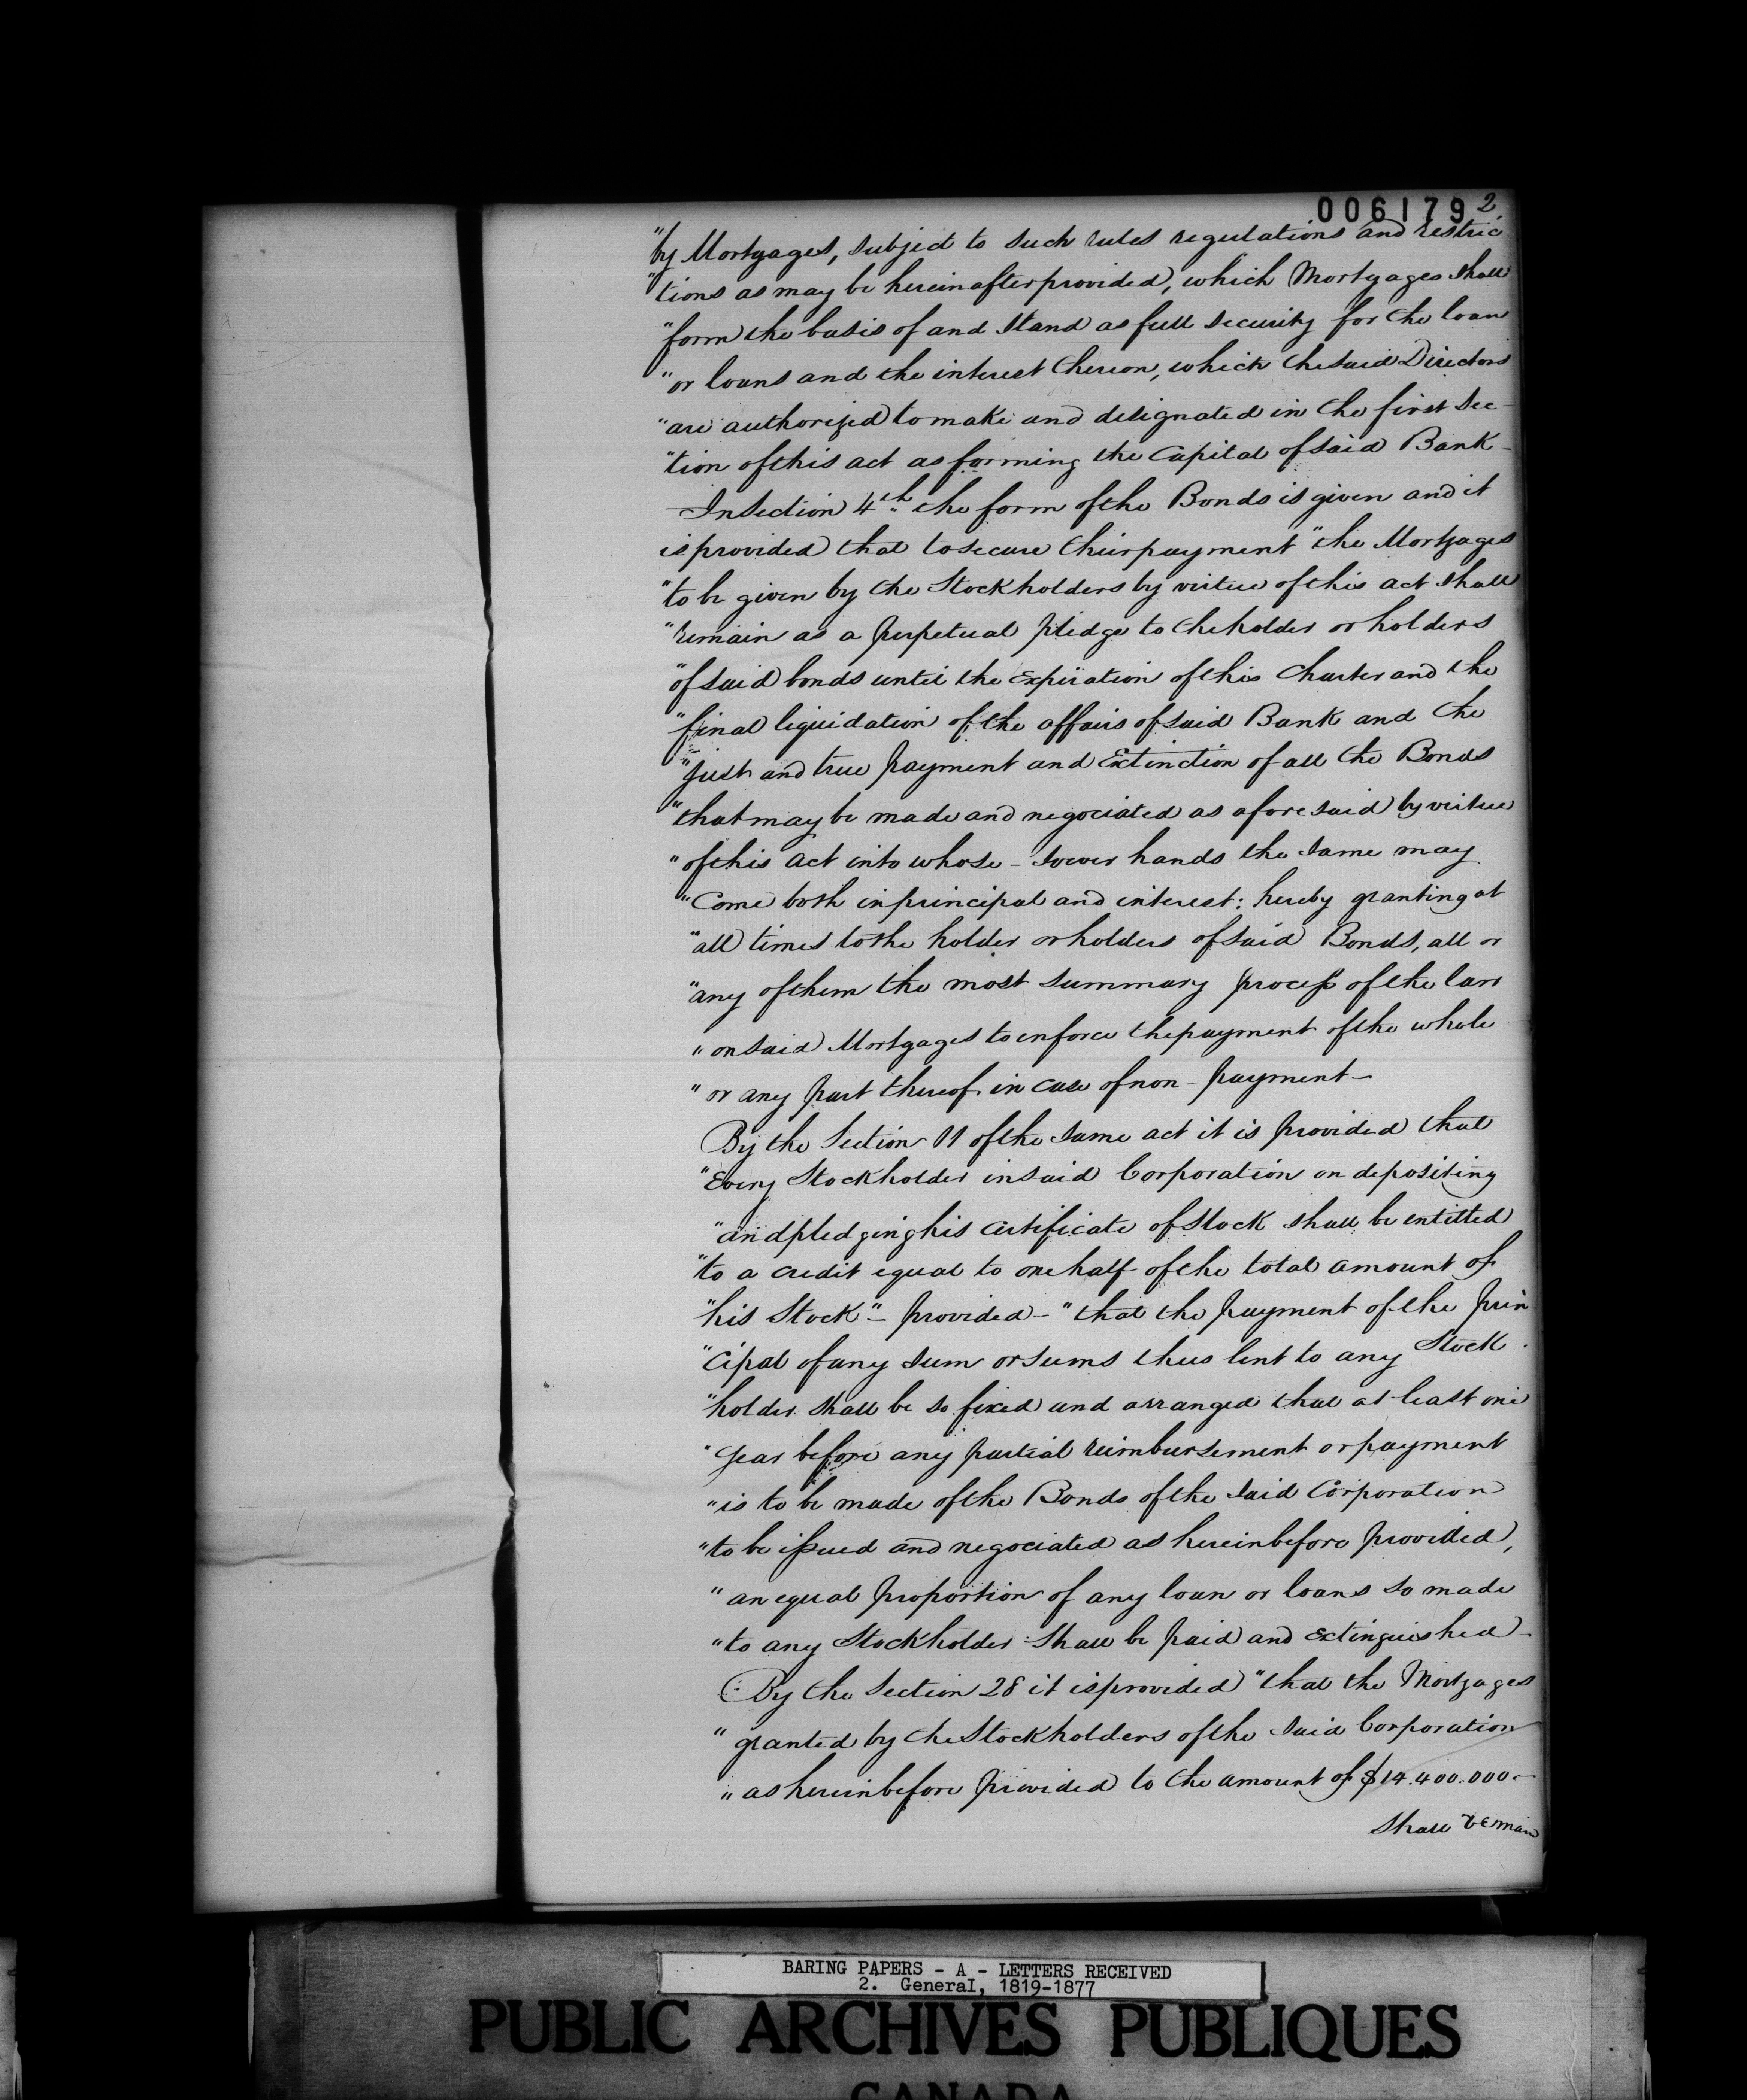 006179 2.
"by Mortgages, subject to such rules regulations and restric
"tions as may be hereinafter provided, which Mortgages shall
"form the basis of and stand as full security for the loan
"or loans and the interest thereon, which the said Directors
"are authorized to make and designated in the first Sec-
"tion of this act as forming the Capital of said Bank -
In Section 4th the form of the Bonds is given and it
is provided that to secure their payment "the Mortgages
"to be given by the Stockholders by virtue of this act shall
"remain as a perpetual pledge to the holder or holders
"of said bonds until the Expiration of this Charter and the
"final liquidation of the affairs of said Bank and the
"just and true payment and Extinction of all the Bonds
"that may be made and negociated as aforesaid by virtue
"of this act into whose-soever hands the same may
"Come both in principal and interest: hereby granting at
"all times to the holder or holders of said Bonds, all or
"any of them the most summary process of the law
"on said Mortgages to enforce the payment of the whole
"or any part thereof in case of non-payment -
By the Section 11 of the same act it is provided that
"Every Stockholder in said Corporation on depositing
"and pledging his certificate of Stock shall be entitled
"to a credit equal to one half of the total amount of
"his Stock" - provided - "that the payment of the prin
"cipal of any sum or sums thus lent to any Stock
"holder shall be so fixed and arranged that at least one
"year before any partial reimbursement or payment
"is to be made of the Bonds of the said Corporation
"to be issued and negociated as hereinbefore provided,
"an equal proportion of any loan or loans so made
"to any Stockholder shall be paid and extinguished -
By the Section 28 it is provided "that the Mortgages
"granted by the Stockholders of the said Corporation
"as hereinbefore provided to the amount of $14.400.000 -
Shall remain
BARING PAPERS - A - LETTERS RECEIVED
2. General, 1819-1877
PUBLIC ARCHIVES PUBLIQUES
CANADA